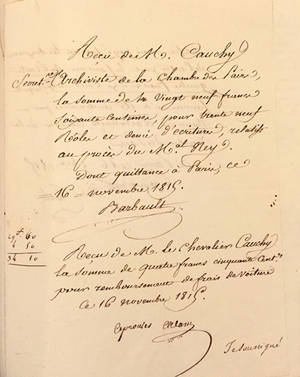 Recu de M. Cauchy
Secret.re Archiviste de la Chambre des Pairs,
la somme de vingt neuf francs
soixante centimes, pour trente neuf
Rôles et demie d'écriture, relatifs
au procès du M.al Ney.
Dont quittance à Paris, ce
16 novembre 1815
Barbault
29 60
4 50
34 10
Recu de M. le Chevalier Cauchy
la somme de quatre francs cinquante Cent.es
pour remboursement de frais de voiture
ce 16 novembre 1815.